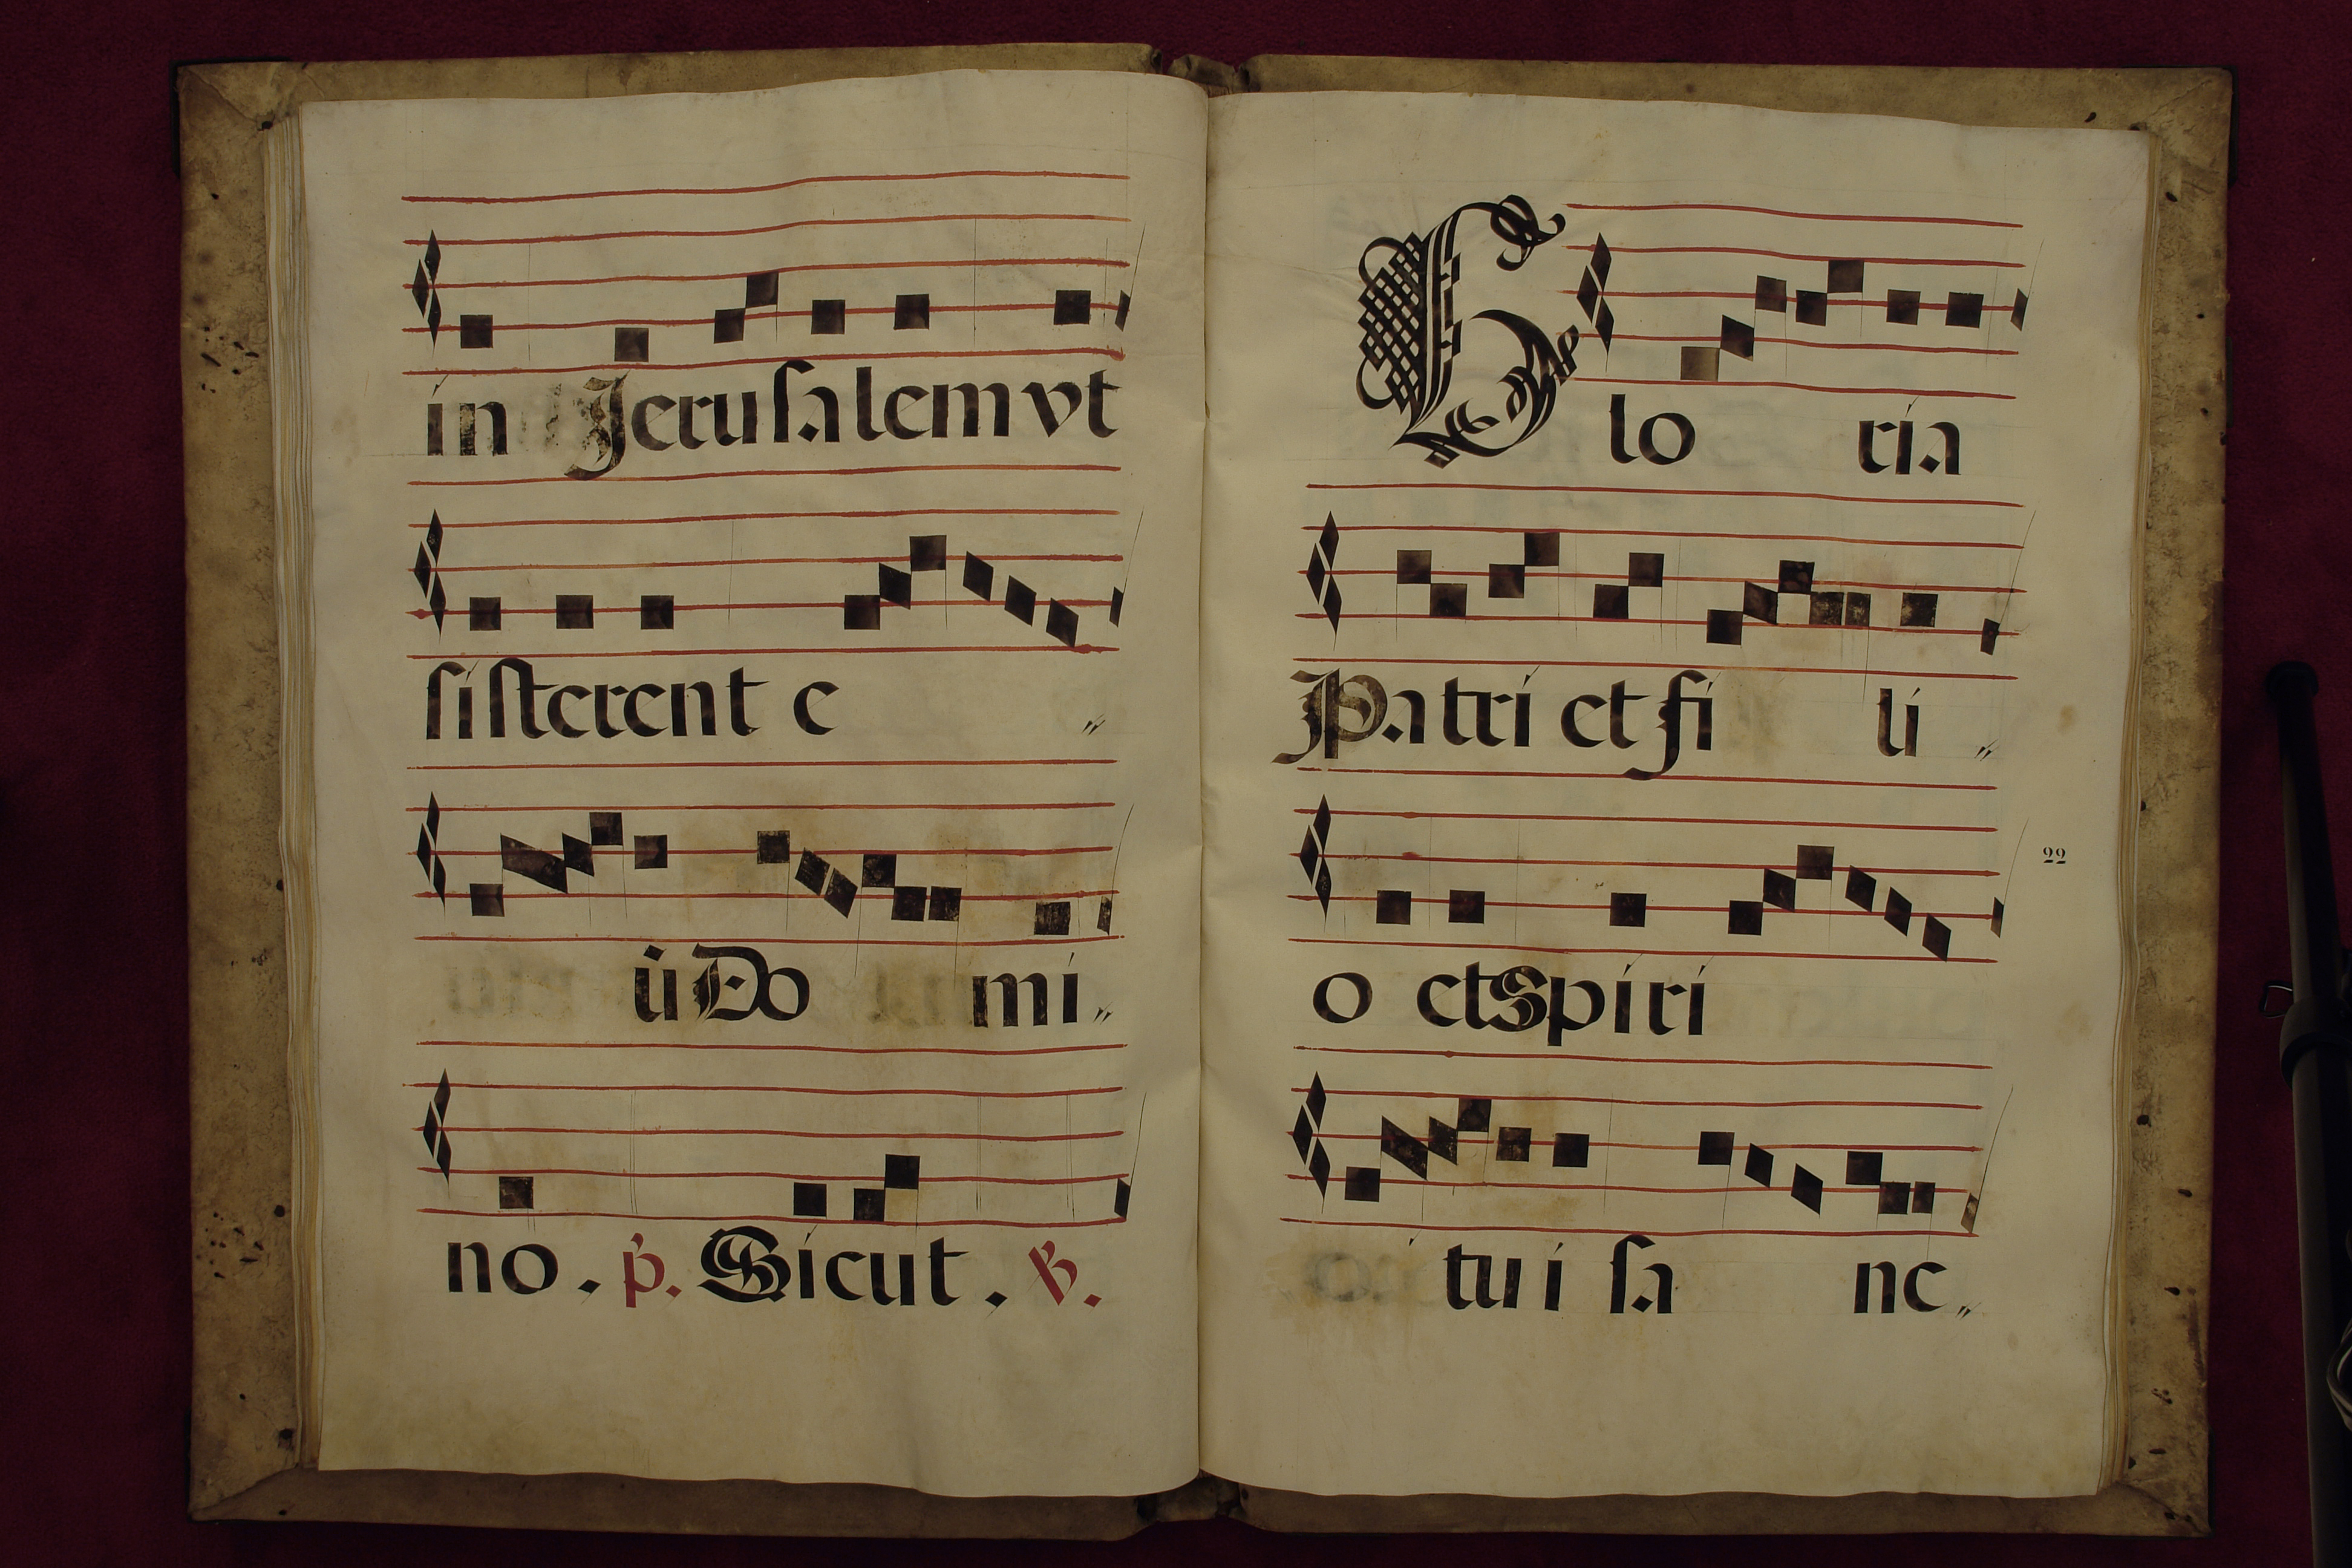 in Jerusalem vt
sisterent e
ū Do mi
no . p. Sicut . V.
Glo ria
Patri et fi li
22
o et Spiri
tui sa nc